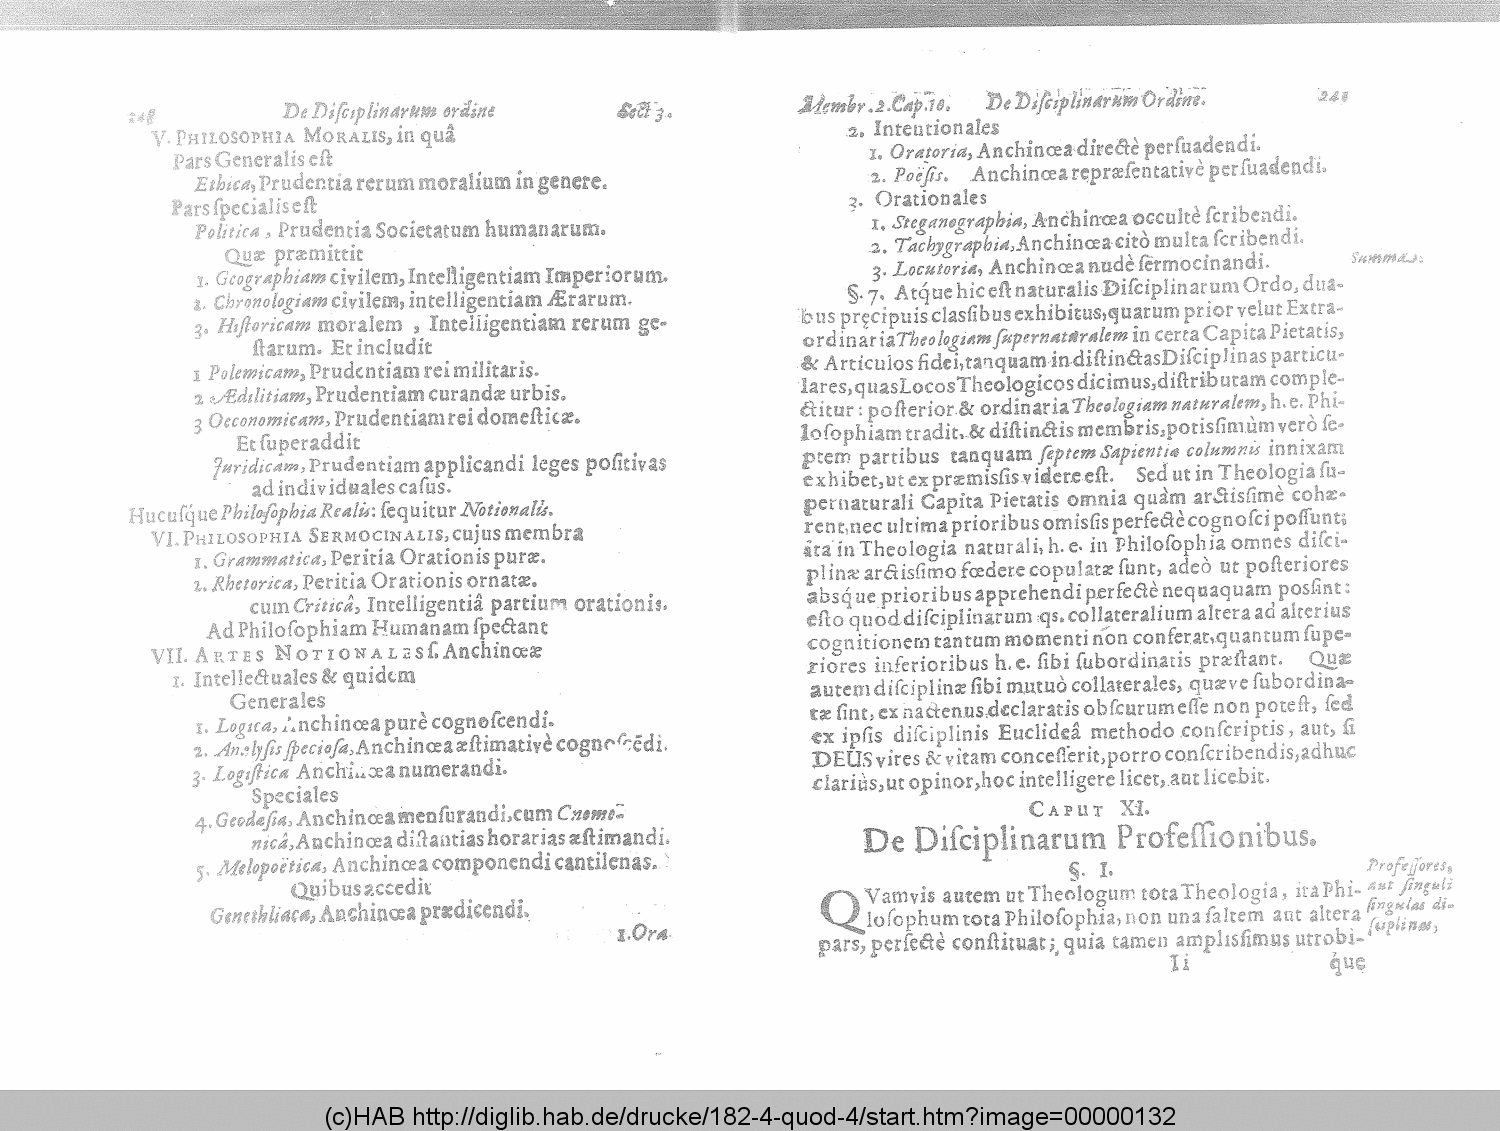 248 De Diſciplinarum ordine Sect 3.
V. PHILOSOPHIA MORALIS, in quâ
Pars Generalis eſt
Ethica, Prudentia rerum moralium in genere.
Pars ſpecialis eſt
Politica, Prudentia Societatum humanarum.
Quæ præmittit
1. Geographiam civilem, Intelligentiam Imperiorum.
2. Chronologiam civilem, intelligentiam Ærarum.
3. Hiſtoricam moralem , Intelligentiam rerum ge-
ſtarum. Et includit
1 Polemicam, Prudentiam rei militaris.
2 Ædilitiam, Prudentiam curandæ urbis.
3 Oeconomicam, Prudentiam rei domeſticæ.
Et ſuperaddit
Juridicam, Prudentiam applicandi leges poſitivas
ad individuales caſus.
Hucuſq́ue Philoſophia Realis: ſequitur Notionalis.
VI. PHILOSOPHIA SERMOCINALIS, cujus membra
1. Grammatica, Peritia Orationis puræ.
2. Rhetorica, Peritia Orationis ornatæ.
cum Criticâ, Intelligentiâ partium orationis.
Ad Philoſophiam Humanam ſpectant
VII. ARTES NOTIONALES ſ. Anchinœæ
1. Intellectuales & quidem
Generales
1. Logica, Anchinœa purè cognoſcendi.
2. Analyſis ſpecioſa, Anchinœa æſtimativè cognoſcēdi.
3. Logiſtica Anchinœa numerandi.
Speciales
4. Geodæſia, Anchinœa menſurandi, cum Gnomo-
nicâ, Anchinœa diſtantias horarias æſtimandi.
5. Melopoëtica, Anchinœa componendi cantilenas.
Quibus accedit
Genethliaca, Anchinœa prædicendi.
1. Ora-
Membr. 2. Cap. 10. De Diſciplinarum Ordine. 241
2. Intentionales
1. Oratoria, Anchinœa directè perſuadendi.
2. Poëſis. Anchinœa repræſentativè perſuadendi.
3. Orationales
1. Steganographia, Anchinœa occultè ſcribendi.
2. Tachygraphia, Anchinœa citò multa ſcribendi.
3. Locutoria, Anchinœa nudè ſermocinandi.
§. 7. Atq́ue hic eſt naturalis Diſciplinarum Ordo, dua-
bus pręcipuis clasſibus exhibitus, quarum prior velut Extra-
ordinaria Theologiam ſupernaturalem in certa Capita Pietatis,
& Articulos fidei, tanquam in diſtinctas Diſciplinas particu-
lares, quas Locos Theologicos dicimus, diſtributam comple-
ctitur: poſterior & ordinaria Theologiam naturalem, h. e. Phi-
loſophiam tradit, & diſtinctis membris, potisſimùm verò ſe-
ptem partibus tanquam ſeptem Sapientiæ columnis innixam
exhibet, ut ex præmisſis videre eſt. Sed ut in Theologia ſu-
pernaturali Capita Pietatis omnia quàm arctisſimè cohæ-
rent, nec ultima prioribus omisſis perfectè cognoſci poſſunt;
ita in Theologia naturali, h. e. in Philoſophia omnes diſci-
plinæ arctisſimo fœdere copulatæ ſunt, adeò ut poſteriores
absq́ue prioribus apprehendi perfectè nequaquam posſint:
eſto quod diſciplinarum qs. collateralium altera ad alterius
cognitionem tantum momenti non conferat, quantum ſupe-
riores inferioribus h. e. ſibi ſubordinatis præſtant. Quæ
autem diſciplinæ ſibi mutuò collaterales, quæve ſubordina-
tæ ſint, ex hactenus declaratis obſcurum eſſe non poteſt, ſed
ex ipſis diſciplinis Euclideâ methodo conſcriptis, aut, ſi
DEUS vires & vitam conceſſerit, porro conſcribendis, adhuc
clariùs, ut opinor, hoc intelligere licet, aut licebit.
Summa
CAPUT XI.
De Diſciplinarum Profeſſionibus.
§. I.
QVamvis autem ut Theologum tota Theologia, ita Phi-
loſophum tota Philoſophia, non una ſaltem aut altera
pars, perfectè conſtituat; quia tamen amplisſimus utrobi-
Profeſſores,
aut ſinguli
ſingulas di-
ſciplinas,
Ii q́ue
(c)HAB http://diglib.hab.de/drucke/182-4-quod-4/start.htm?image=00000132